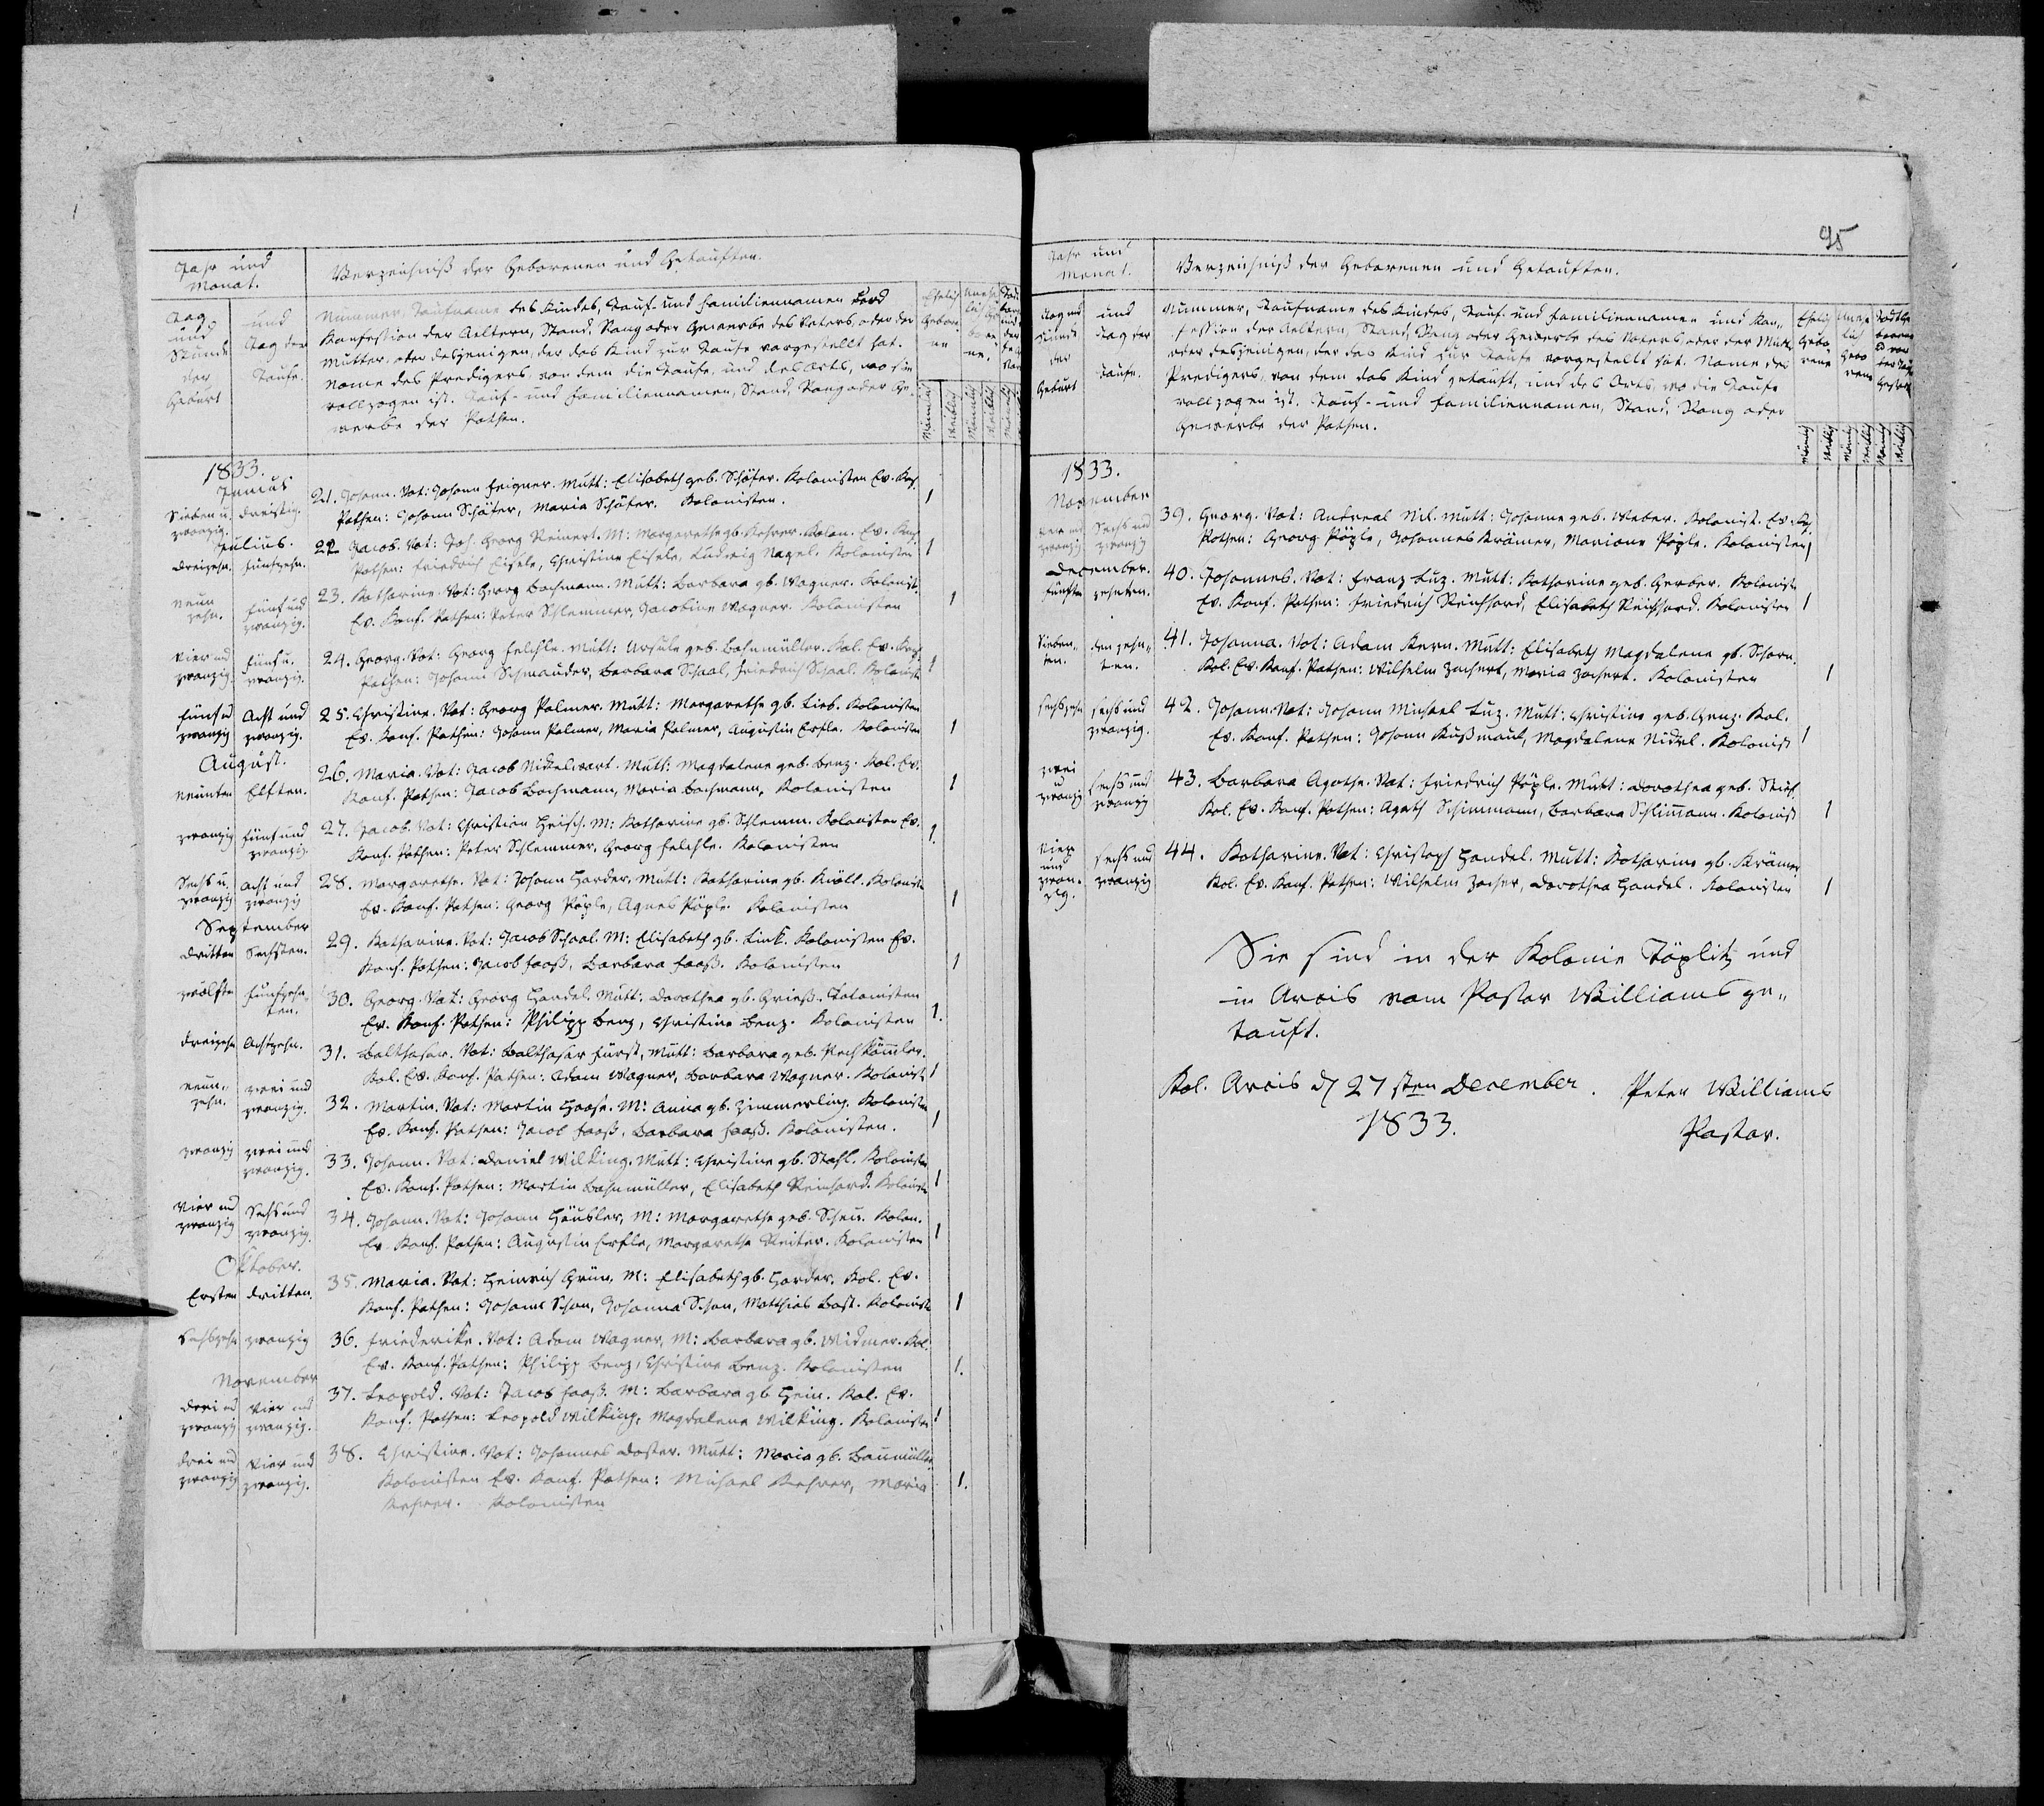 Jahr und
Monat.
Verzeichniß der Geborenen und Getauften.
Tag
und
Stunde
der
Geburt
und
Tag der
Taufe.
Nummer, Taufname des Kindes, Tauf- und Familiennamen und
Konfession der Aeltern, Stand, Rang oder Gewerbe des Vaters, oder der
Mutter, oder desjenigen, der das Kind zur Taufe vorgestellt hat.
Name des Predigers, von dem die Taufe, und des Orts, wo sie
vollzogen ist. Tauf- und Familiennamen, Stand, Rang oder Ge-
werbe der Pathen.
Ehelich
Gebore-
ne
Männlich
Weiblich
Männlich
Weiblich
1833.
Junius
Sieben u.
zwanzig.
dreißig.
21. Johann. Vat: Johann Feigner. Mutt: Elisabeth geb. Schäfer. Kolonisten Ev. Konf.
Pathen: Johann Schäfer, Maria Schäfer. Kolonisten. 1
Julius.
dreizehn. fünfzehn.
22. Jacob. Vat: Joh. Georg Reinert. M: Margarethe gb. Kehrer. Kolon. Ev. Konf.
Pathen: Friedrich Eisele, Christine Eisele, Ludwig Nagel. Kolonisten 1
neun
zehn.
fünf und
zwanzig.
23. Katharine. Vat: Georg Bachmann. Mutt: Barbara gb. Wagner. Kolonist.
Ev. Konf. Pathen: Peter Schlemmer, Jacobine Wagner. Kolonisten 1
vier und
zwanzig.
fünf u.
zwanzig.
24. Georg. Vat: Georg Felchle. Mutt: Ursula geb. Bahnmüller. Kol. Ev. Konf.
Pathen: Johann Schmauder, Barbara Schaal, Friedrich Schaal. Kolonist 1
fünf u
zwanzig
Acht und
zwanzig.
25. Christine. Vat: Georg Palmer. Mutt: Margarethe gb. Lieb. Kolonisten
Ev. Konf. Pathen: Johann Palmer, Maria Palmer, Augustin Erfle. Kolonisten 1
August.
neunten Elften.
26. Maria. Vat: Jacob Nickelwart. Mutt: Magdalena geb. Benz. Kol. Ev.
Konf. Pathen: Jacob Bachmann, Maria Bachmann, Kolonisten 1
zwanzig fünf und
zwanzig.
27. Jacob. Vat: Christian Heisch. M: Katharine gb. Schlemm. Kolonisten Ev.
Konf. Pathen: Peter Schlemmer, Georg Felchle. Kolonisten 1.
Sechs u.
zwanzig
Acht und
zwanzig
28. Margarethe. Vat: Johann Harder. Mutt: Katharine gb. Knöll. Kolonist
Ev. Konf. Pathen: Georg Pöple, Agnes Pöple. Kolonisten 1
September
dritten Sechsten.
29. Katharine. Vat: Jacob Schaal. M: Elisabeth gb. Link. Kolonisten Ev.
Konf. Pathen: Jacob Haaß, Barbara Haaß. Kolonisten 1
zwölften fünfzehn-
ten.
30. Georg. Vat: Georg Handel. Mutt: Dorothea gb. Grieß. Kolonisten
Ev. Konf. Pathen: Philipp Benz, Christine Benz. Kolonisten 1.
dreizehn Achtzehn.
31. Balthasar. Vat: Balthasar Fürst, Mutt: Barbara geb.
Kol. Ev. Konf. Pathen: Adam Wagner, Barbara Wagner. Kolonist 1
neun-
zehn.
zwei und
zwanzig.
32. Martin. Vat: Martin Haase. M: Anna gb. Zimmerling. Kolonisten
Ev. Konf. Pathen: Jacob Haaß, Barbara Haaß. Kolonisten. 1
zwanzig zwei und
zwanzig.
33. Johann. Vat: Daniel Wilking. Mutt: Christine gb. Stahl. Kolonisten
Ev. Konf. Pathen: Martin Bahnmüller, Elisabeth Reinhard. Kolonist 1
Vier und
zwanzig
Sechs und
zwanzig.
34. Johann. Vat: Johann Häusler, M: Margarethe geb. Scheu. Kolon.
Ev. Konf. Pathen: Augustin Erfle, Margaretha Reiter. Kolonisten 1
Oktober.
Ersten dritten.
35. Maria. Vat: Heinrich Grün, M: Elisabeth gb. Harder. Kol. Ev.
Konf. Pathen: Johann Schon, Johanna Schon, Matthias Bast. Kolonist 1
Sechszehn zwanzig
36. Friederike. Vat: Adam Wagner, M: Barbara gb. Widmer. Kol.
Ev. Konf. Pathen: Philipp Benz, Christine Benz. Kolonisten 1.
November
drei und
zwanzig
Vier und
zwanzig.
37. Leopold. Vat: Jacob Haaß. M: Barbara gb Hein. Kol. Ev.
Konf. Pathen: Leopold Wilking, Magdalena Wilking. Kolonisten 1
drei und
zwanzig
Vier und
zwanzig.
38. Christine. Vat: Johannes Daster. Mutt: Maria gb. Baumüller
Kolonisten Ev. Konf. Pathen: Michael Kehrer, Maria 1.
Kehrer. Kolonisten
95
Jahr und
Monat.
Verzeichniß der Geborenen und Getauften.
Tag und
Stunde
der
Geburt
und
Tag der
Taufe.
Nummer, Taufname des Kindes, Tauf- und Familiennamen und Kon-
fession der Aeltern, Stand, Rang oder Gewerbe des Vaters, oder der Mutt.
oder desjenigen, der das Kind zur Taufe vorgestellt hat. Name des
Predigers, von dem das Kind getauft, und des Orts, wo die Taufe
vollzogen ist. Tauf- und Familiennamen, Stand, Rang oder
Gewerbe der Pathen.
Ehelich
Gebo-
rene
Uneh-
lich
Gebo
rene
Männlich
Weiblich
Männlich
Weiblich
Männlich
Weiblich
1833.
November
vier und
zwanzig
Sechs und
zwanzig
39. Georg. Vat: Andreas Nil. Mutt: Johanne geb. Weber. Kolonist. Ev. Kf.
Pathen: Georg Pöple, Johannes Krämer, Mariane Pöple. Kolonisten 1
December.
fünften zehnten.
40. Johannes. Vat: Franz Luz. Mutt: Katharine geb. Gerber. Kolonisten
Ev. Konf. Pathen: Friedrich Reichhard, Elisabeth Reichhard. Kolonisten 1
Sieben-
ten.
den zehn-
ten.
41. Johanna. Vat: Adam Kern. Mutt: Elisabeth Magdalena gb. Schorn.
Kol. Ev. Konf. Pathen: Wilhelm Zachert, Maria Zachert. Kolonisten 1
sechszehn sechs und
zwanzig.
42. Johann. Vat: Johann Michael Luz. Mutt: Christine geb. Genz. Kol.
Ev. Konf. Pathen: Johann Kußmaul, Magdalena Nickel. Kolonist 1
zwei
u
zwanzig
sechs und
zwanzig
43. Barbara Agathe. Vat: Friedrich Pöple. Mutt: Dorothea geb.
Kol. Ev. Konf. Pathen: Agath Schimmann, Barbara Schlimann. Kolonist 1
Vier
und
zwan-
zig.
sechs und
zwanzig
44. Katharine. Vat: Christoph Handel. Mutt: Katharine gb. Krämer
Kol. Ev. Konf. Pathen: Wilhelm Zacher, Dorothea Handel. Kolonisten 1
Sie sind in der Kolonie Töplitz und
in Arcis vom Pastor Williams ge-
tauft.
Kol. Arcis d 27sten December.
1833.
Peter Williams
Pastor.